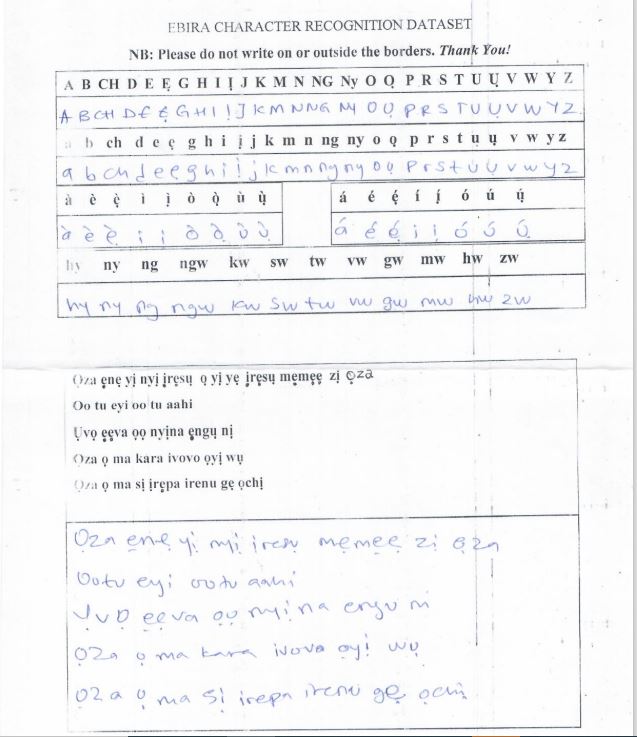 EBIRA CHARACTER RECOGNITION DATASET
NB: Please do not write on or outside the borders. Thank You!
A B CH D E Ẹ G H I Ị J K M N NG Ny O Ọ P R S T U Ụ V W Y Z
A B CH D E Ẹ G H I Ị J K M N NG Ny O Ọ P R S T U Ụ V W Y Z
a b ch d e ẹ g h i ị j k m n ng ny o ọ p r s t u ụ v w y z
a b ch d e ẹ g h i ị j k m n ng ny o ọ p r s t u ụ v w y z
à è ẹ̀ ì ị̀ ò ọ̀ ù ụ̀ á é ẹ́ í ị́ ó ú ụ́
à è ẹ̀ ì ị̀ ò ọ̀ ù ụ̀ á é ẹ́ í ị́ ó ú ụ́
hy ny ng ngw kw sw tw vw gw mw hw zw
hy ny ng ngw kw sw tw vw gw mw hw zw
Ọza ẹnẹ yị nyị ịrẹsụ ọ yị yẹ ịrẹsụ mẹmẹẹ zị ọza
Oo tu eyi oo tu aahi
Ụvọ ẹẹva ọọ nyịna ẹngụ nị
Ọza ọ ma kara ivovo ọyị wụ
Ọza ọ ma sị ịrẹpa irenu gẹ ọchị
Ọza ẹnẹ yị nyị ịresụ mẹmẹẹ zị ọza
Ootu eyi ootu aahi
Ụvọ ẹẹva ọọ nyịna engu ni
Ọza ọ ma kara ivovo oyị wụ
Ọza ọ ma sị irepa irenu gẹ ọchị